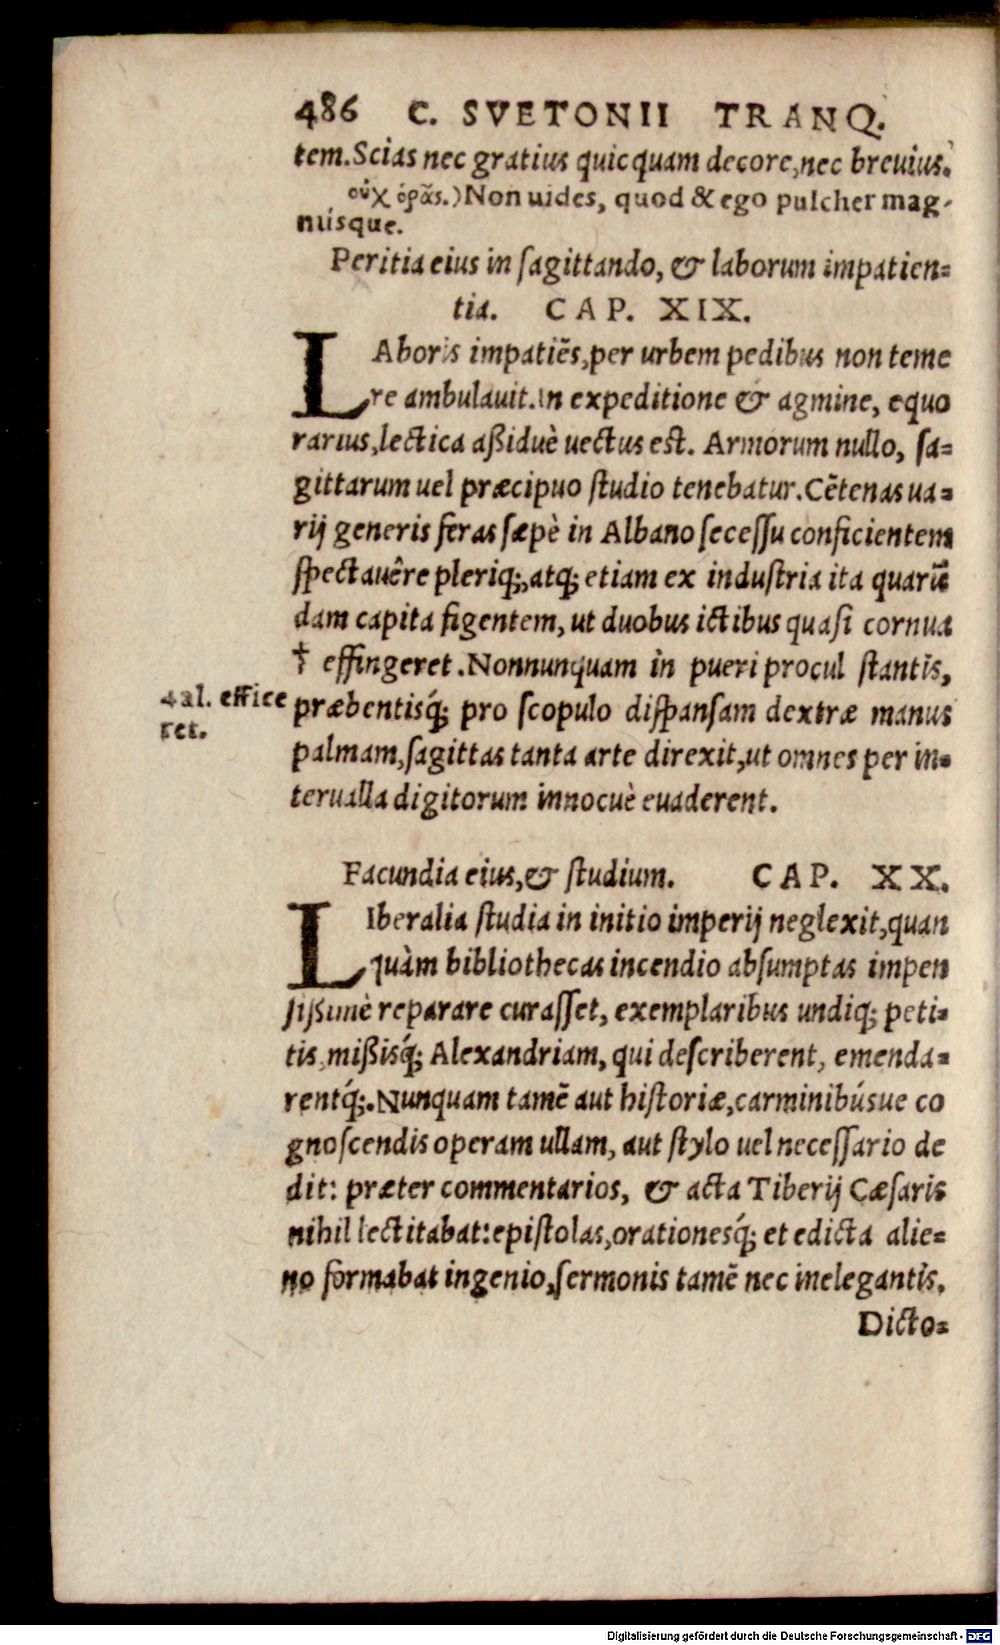 486 C. SVETONII TRANQ.
tem. Scias nec gratius quicquam decore, nec breuius.
οὐχ ὁρᾶς.) Non uides, quod & ego pulcher mag-
nusque.
Peritia eius in sagittando, & laborum impatien=
tia. CAP. XIX.
LAboris impatiēs, per urbem pedibus non teme
re ambulauit. In expeditione & agmine, equo
rarius, lectica aßiduè uectus est. Armorum nullo, sa=
gittarum uel præcipuo studio tenebatur. Cētenas ua=
rij generis feras sæpè in Albano secessu conficientem
spectauêre pleriq;, atq; etiam ex industria ita quarū
dam capita figentem, ut duobus ictibus quasi cornua
† effingeret. Nonnunquam in pueri procul stantis,
præbentisq́; pro scopulo dispansam dextræ manus
palmam, sagittas tanta arte direxit, ut omnes per in=
terualla digitorum innocuè euaderent.
4al. effice
ret.
Facundia eius, & studium. CAP. XX.
LIberalia studia in initio imperij neglexit, quan
quàm bibliothecas incendio absumptas impen
sißimè reparare curasset, exemplaribus undiq; peti=
tis, mißisq́; Alexandriam, qui describerent, emenda=
rentq́;. Nunquam tamē aut historiæ, carminibúsue co
gnoscendis operam ullam, aut stylo uel necessario de
dit: præter commentarios, & acta Tiberij Cæsaris
nihil lectitabat: epistolas, orationesq́; et edicta alie=
no formabat ingenio, sermonis tamē nec inelegantis.
Dicto=
Digitalisierung gefördert durch die Deutsche Forschungsgemeinschaft - DFG